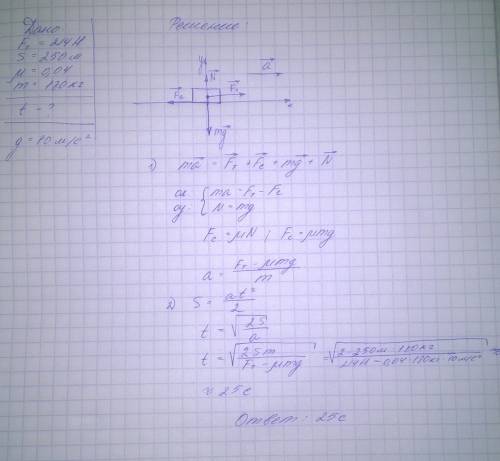 Дано
Fт = 214 Н
S = 250 м
μ = 0,04
m = 120 кг
t = ?
g = 10 м/с²
Решение:
y
N
a
Fс
Fт
x
mg
1) ma = Fт + Fс + mg + N
ох: ma = Fт - Fс
оу: N = mg
Fс = μN ; Fс = μmg
a = (Fт - μmg)/m
2) S = at²/2
t = √(2S/a)
t = √(2Sm/(Fт - μmg)) = √(2·250м·120кг/(214Н - 0,04·120кг·10м/с²)) ≈
≈ 25с
Ответ: 25с